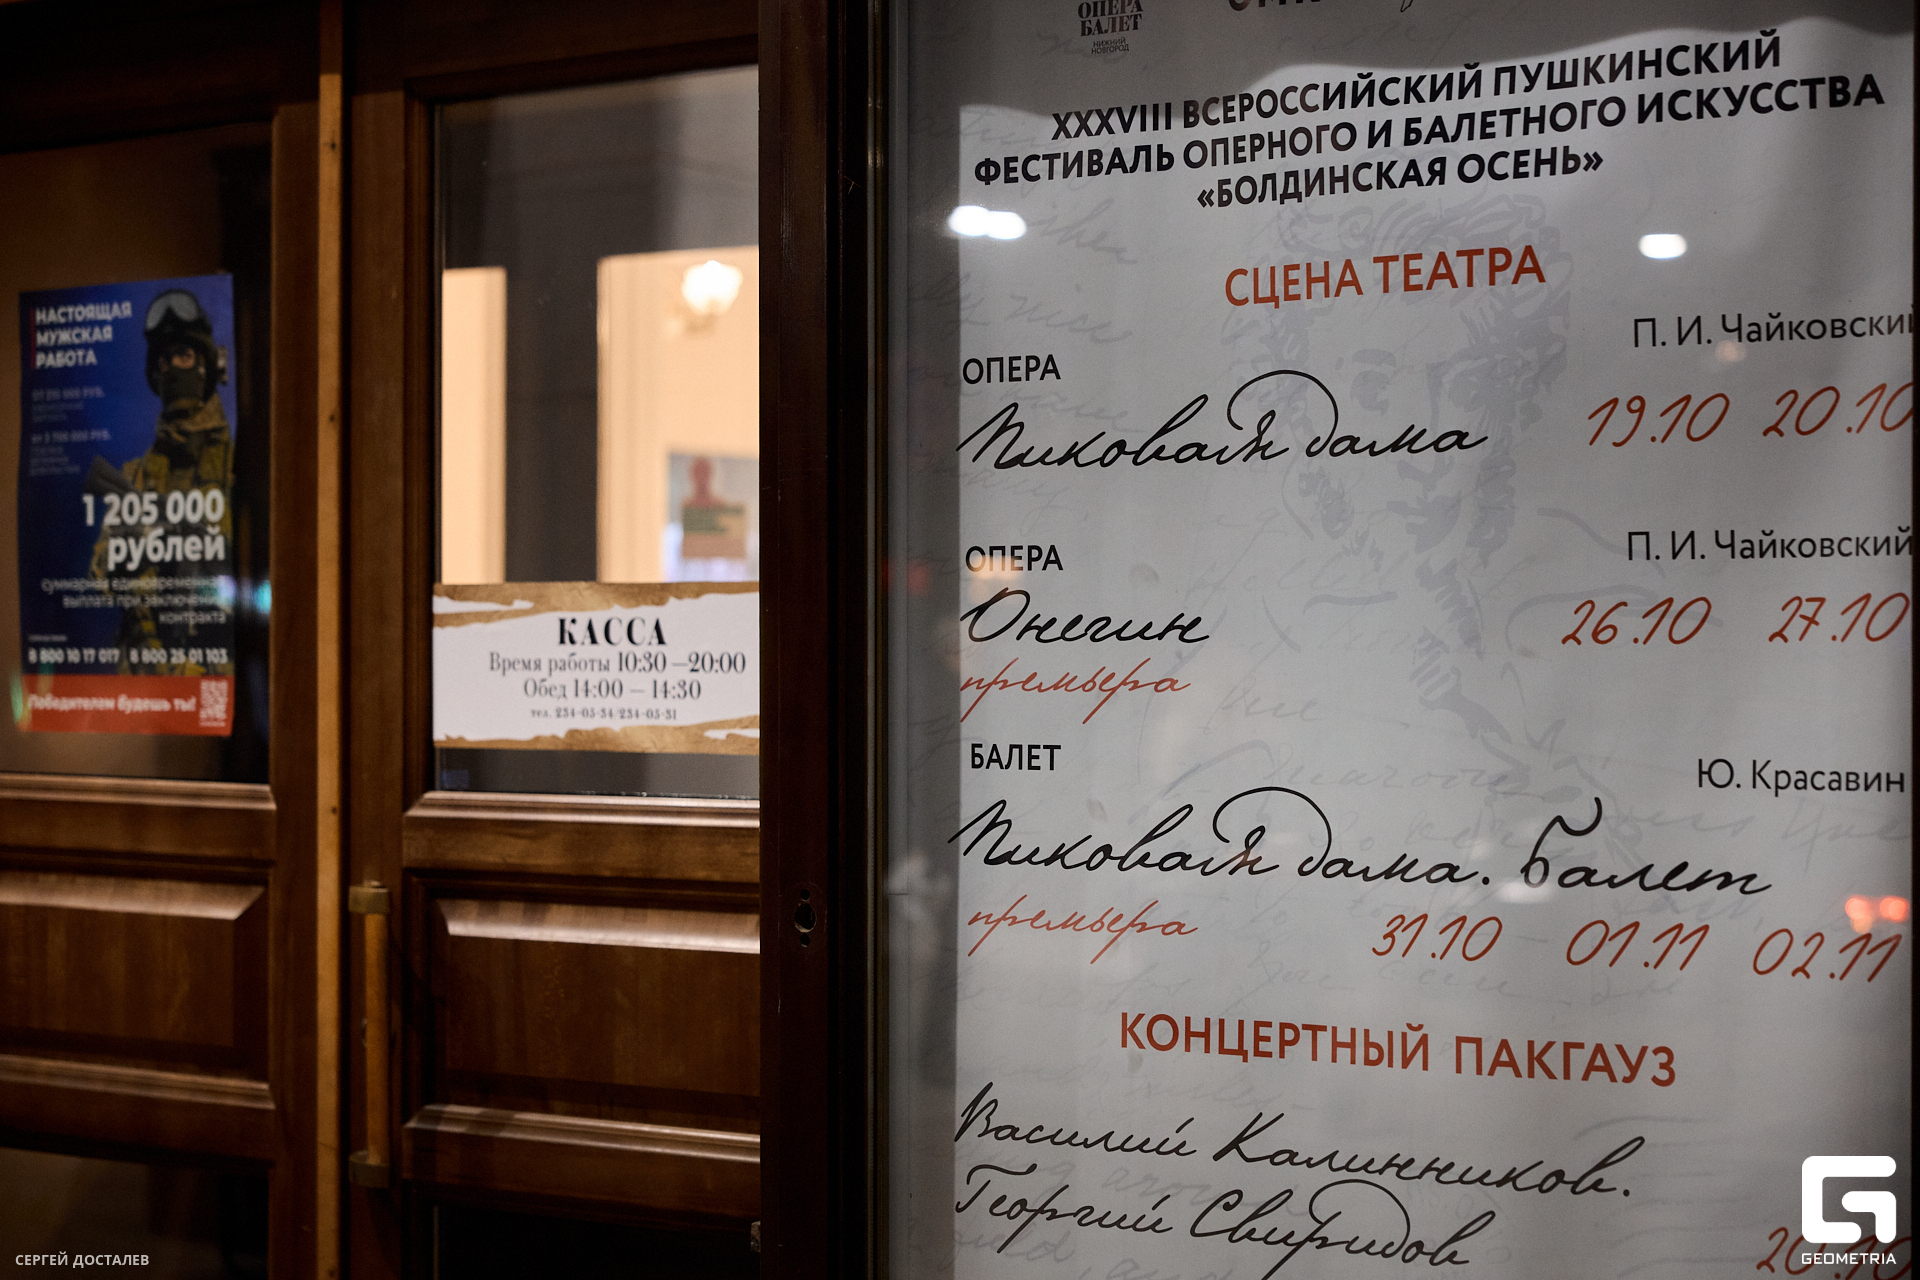 НАСТОЯЩАЯ
МУЖСКАЯ
РАБОТА
1 205 000
рублей
суммарная единовременная
выплата при заключении
контракта
8 800 10 17 017 8 800 25 01 103
Победителем будешь ты!
КАССА
Время работы 10:30 – 20:00
Обед 14:00 – 14:30
тел. 234-05-34/234-05-31
ОПЕРА
БАЛЕТ
НИЖНИЙ
НОВГОРОД
XXXVIII ВСЕРОССИЙСКИЙ ПУШКИНСКИЙ
ФЕСТИВАЛЬ ОПЕРНОГО И БАЛЕТНОГО ИСКУССТВА
«БОЛДИНСКАЯ ОСЕНЬ»
СЦЕНА ТЕАТРА
П. И. Чайковский
ОПЕРА
Пиковая дама 19.10 20.10
П. И. Чайковский
ОПЕРА
Онегин 26.10 27.10
премьера
БАЛЕТ
Ю. Красавин
Пиковая дама. Балет
премьера 31.10 01.11 02.11
КОНЦЕРТНЫЙ ПАКГАУЗ
Василий Калинников.
Георгий Свиридов
20.10
СЕРГЕЙ ДОСТАЛЕВ
GEOMETRIA